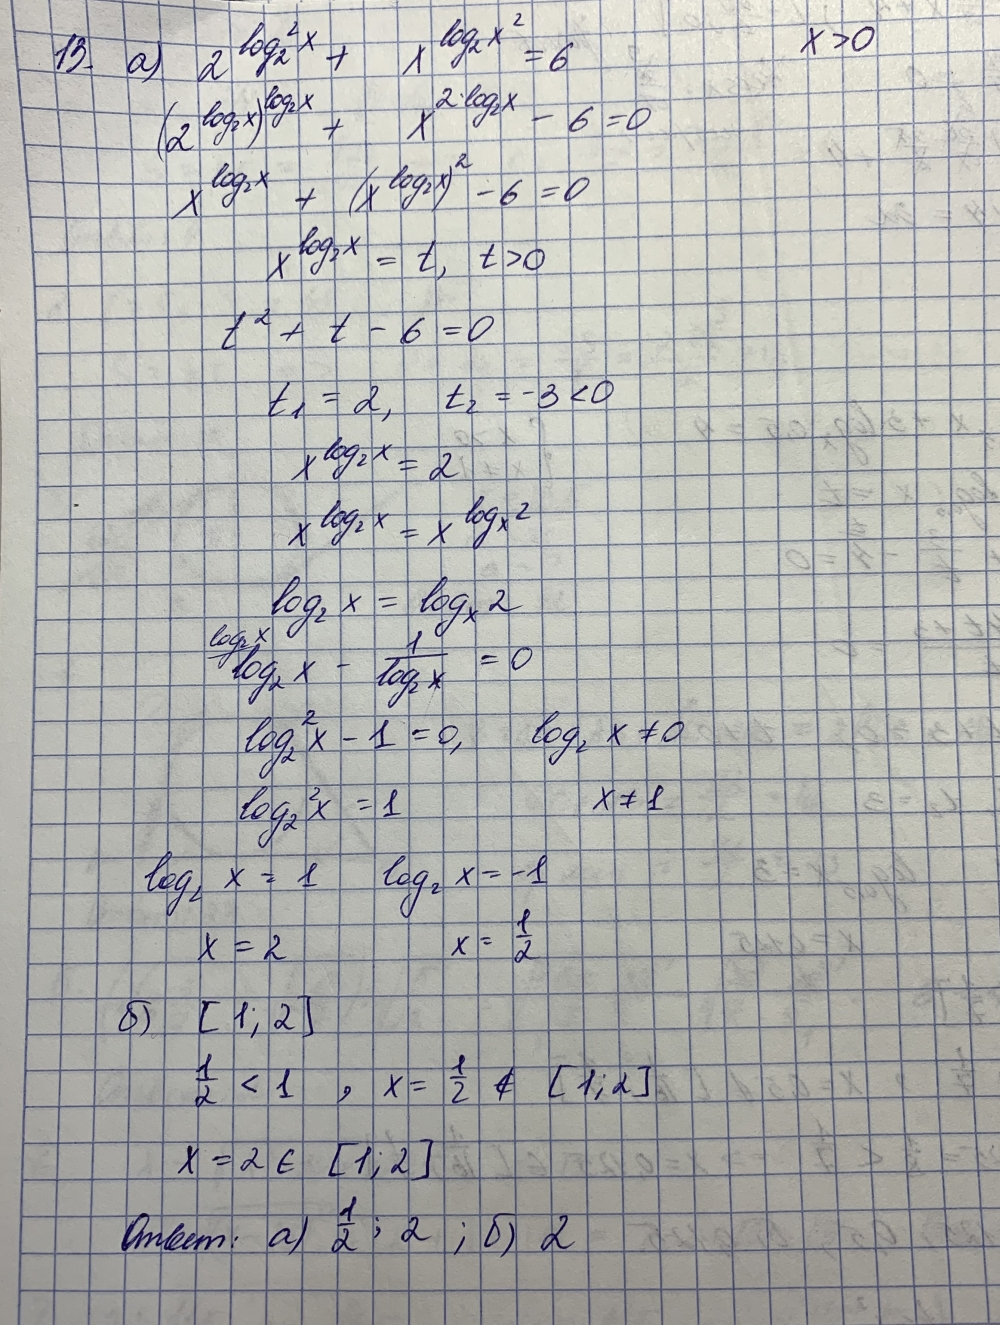 13. а) 2^{log_2^2 x} + x^{log_2 x^2} = 6    x > 0
(2^{log_2 x})^{log_2 x} + x^{2·log_2 x} - 6 = 0
x^{log_2 x} + (x^{log_2 x})^2 - 6 = 0
x^{log_2 x} = t, t > 0
t^2 + t - 6 = 0
t_1 = 2, t_2 = -3 < 0
x^{log_2 x} = 2
x^{log_2 x} = x^{log_x 2}
log_2 x = log_x 2
log_2 x
log_2 x - \frac{1}{log_2 x} = 0
log_2^2 x - 1 = 0, log_2 x ≠ 0
log_2^2 x = 1    x ≠ 1
log_2 x = 1    log_2 x = -1
x = 2    x = \frac{1}{2}
б) [1; 2]
\frac{1}{2} < 1 , x = \frac{1}{2} ∉ [1; 2]
x = 2 ∈ [1; 2]
Ответ: а) \frac{1}{2}; 2 ; б) 2